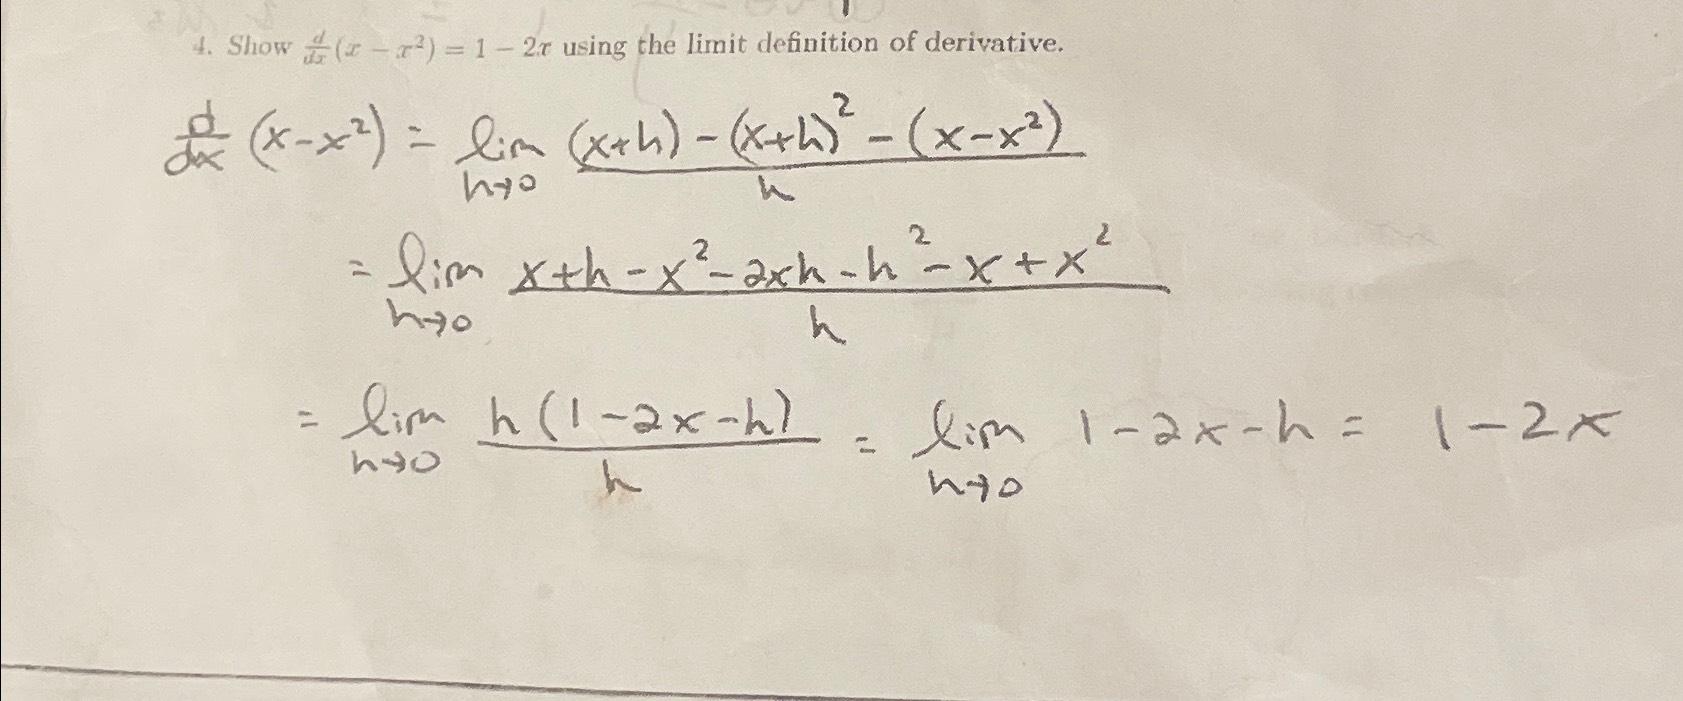 4. Show d/dx (x − x²) = 1 − 2x using the limit definition of derivative.
d/dx (x-x²) = lim h→0 ((x+h) - (x+h)² - (x-x²))/h
= lim h→0 (x+h-x²-2xh-h²-x+x²)/h
= lim h→0 h(1-2x-h)/h = lim h→0 1-2x-h = 1-2x